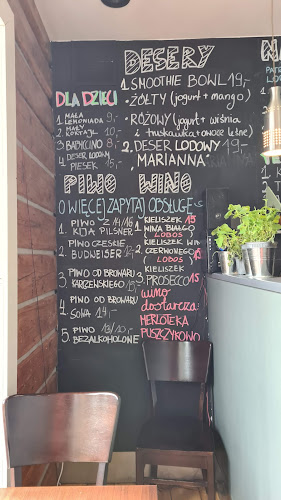 DESERY
1. SMOOTHIE BOWL 19,-
• ŻÓŁTY (jogurt + mango)
• RÓŻOWY (jogurt + wiśnia
i truskawka + owoce letnie)
2. DESER LODOWY 19,-
"MARIANNA"
DLA DZIECI
1. MAŁA
LEMONIADA 9,-
2. MAŁY
KOKTAJL 10,-
3. BABYCCINO 8,-
4. DESER LODOWY
PIESEK 15,-
PIWO WINO
O WIĘCEJ ZAPYTAJ OBSŁUGĘ
1. PIWO Z 14/16
KIJA PILSNER
2. PIWO CZESKIE
BUDWEISER
3. PIWO OD BROWARU
KARZENSKIEGO
4. PIWO OD BROWARU
SOWA 14,-
5. PIWO 13/10,-
BEZALKOHOLOWE
KIELISZEK 15
1. WINA BIAŁEGO
(LOBOS)
KIELISZEK WINA
2. CZERWONEGO 15
(LOBOS)
KIELISZEK
3. PROSECCO 15
wino
dostarcza:
MERLOTEKA
PUSZCZYKOWO